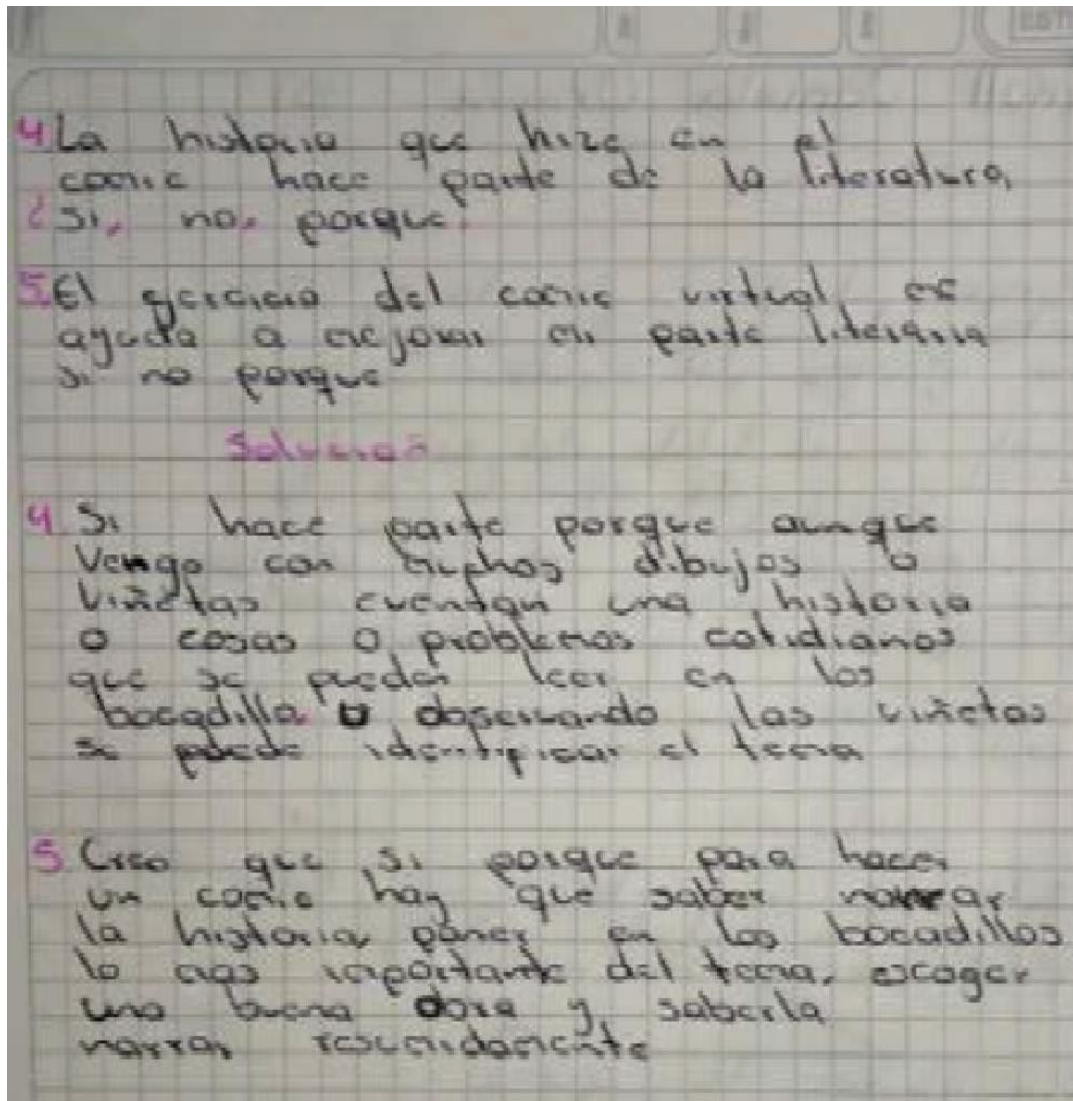 4 La historia que hize en el
comic hace parte de la literatura,
¿Si, no, porque.
5. El ejercicio del comic virtual, me
ayuda a mejorar mi parte literaria
si no porque
Solucion
4. Si hace parte porque aunque
Venga con muchos dibujos o
Viñetas cuentan una historia
o cosas o problemas cotidianos
que se pueden leer en los
bocadilla u observando las viñetas
se puede identificar el tema
5 Creo que si porque para hacer
un comic hay que saber narrar
la historia poner en los bocadillos
lo mas importante del tema, escoger
una buena obra y saberla
narrar resumidamente